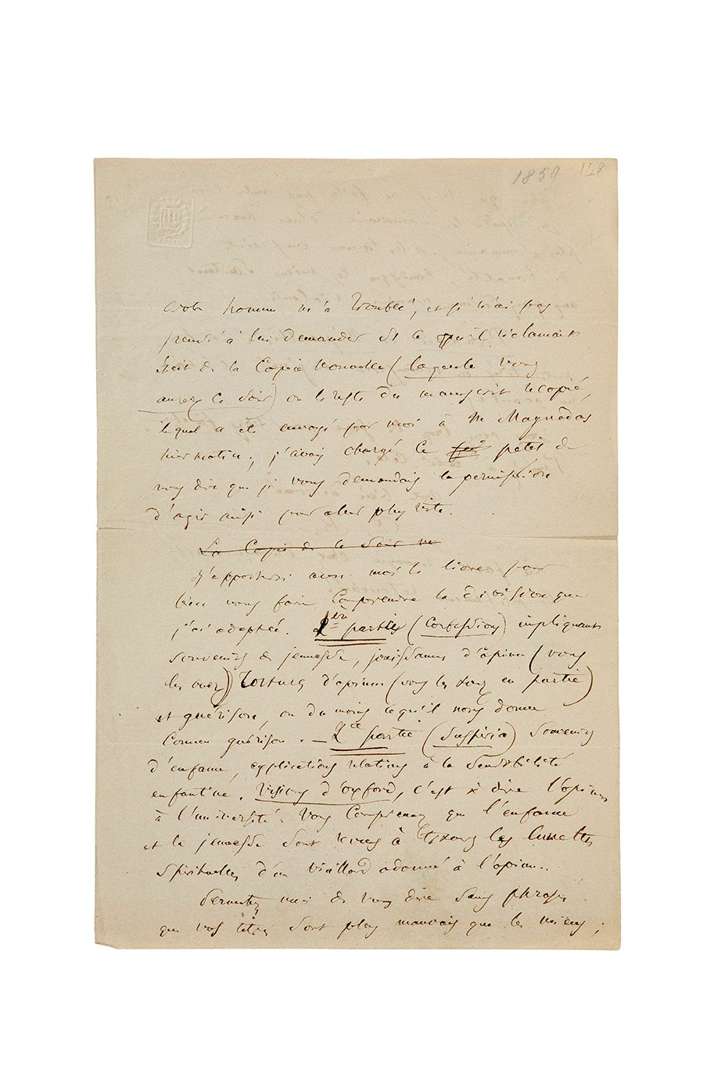 1859
votre homme m'a troublé, et je n'ai pas
pensé à lui demander si ce qu'il réclamait
était de la Copie nouvelle (laquelle vous
aurez ce soir) ou le reste du manuscrit recopié,
lequel a été envoyé par moi à M Magnadas
hier matin ; j'avais chargé le petit de
vous dire que je vous demandais la permission
d'agir ainsi pour aller plus vite.
La Copie de ce Soir
J'apporterai aussi moi le livre pour
bien vous faire comprendre la division que
j'ai adoptée. 1ère partie (Confessions) impliquant
souvenirs de jeunesse, jouissances d'opium (vous
les avez) tortures d'opium (vous les avez en partie)
et guérison, ou du moins ce qu'il nous donne
comme guérison. — 2e partie (Suspiria) Souvenirs
d'enfance, explications relatives à la sensibilité
enfantine. Visions d'Oxford, c'est à dire l'opium
à l'université. Vous comprenez que l'enfance
et la jeunesse sont vues à travers les lunettes
spirituelles d'un vieillard adonné à l'opium.
Permettez moi de vous dire sans phrases
que vos titres sont plus mauvais que les miens ;